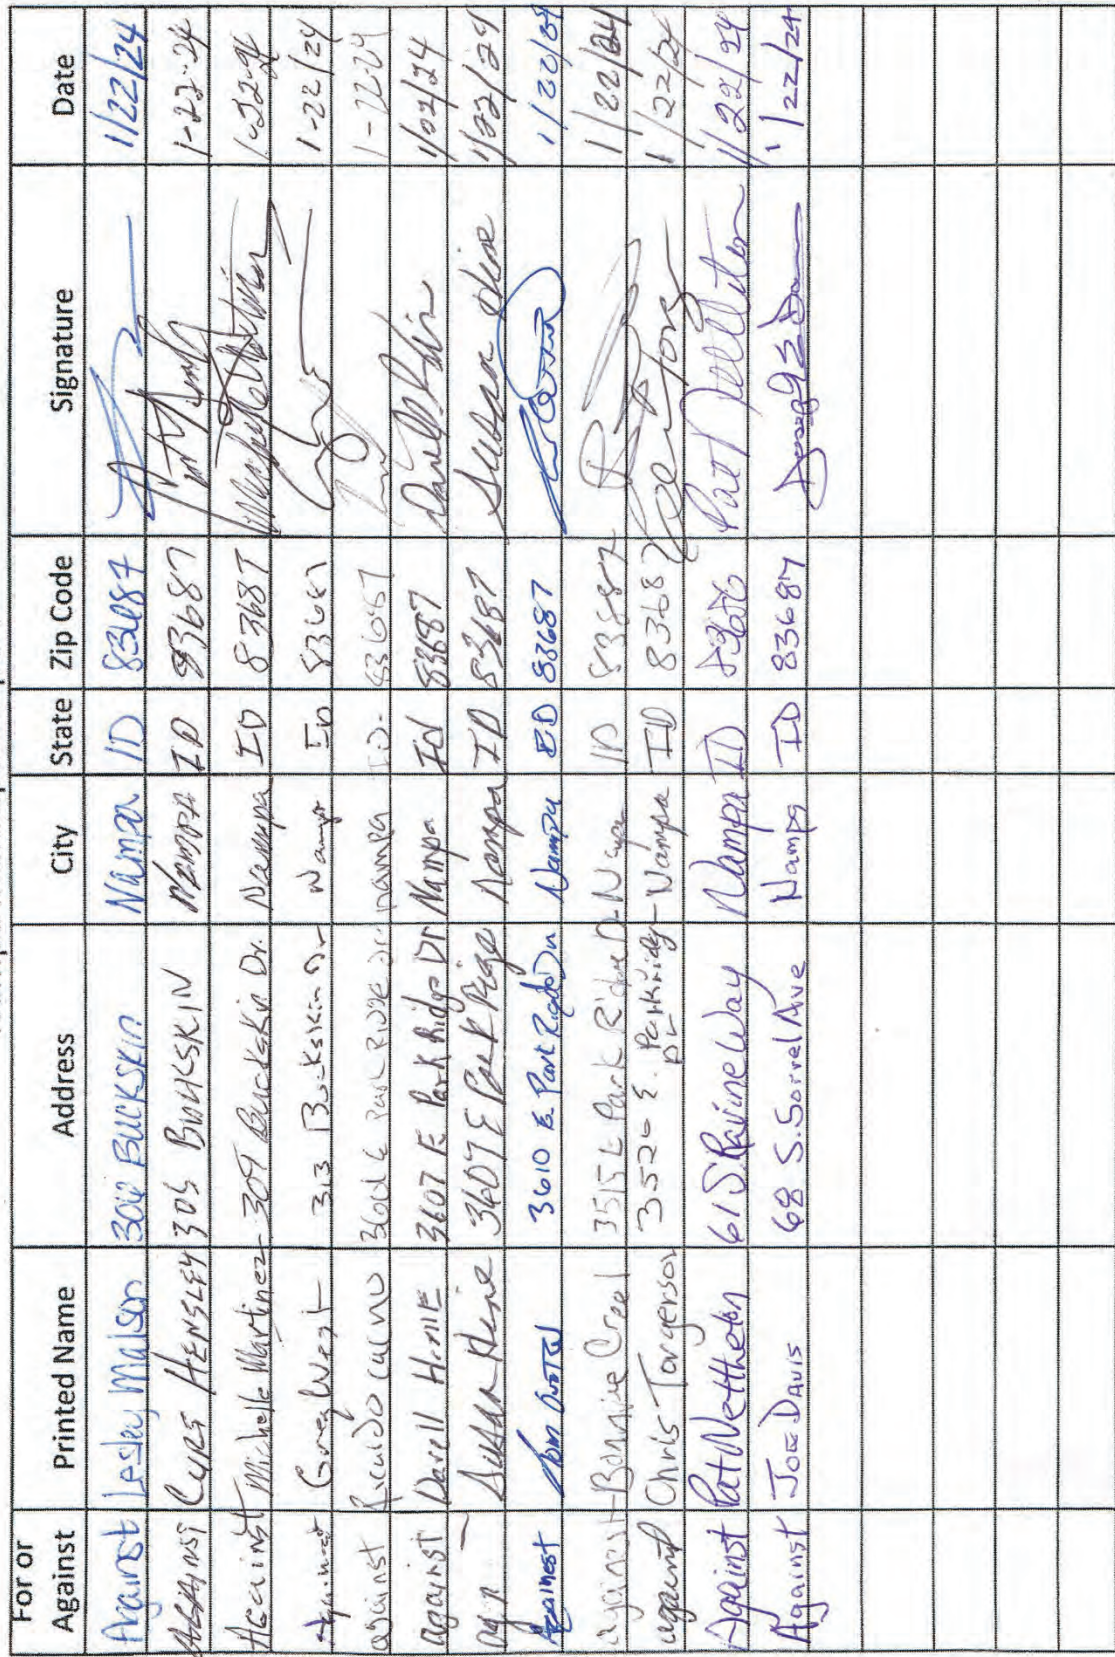 For or Against Printed Name Address City State Zip Code Signature Date
Against Lesley Malson 306 BUCKSKIN Nampa ID 83687 1/22/24
AGAINST CURT HENSLEY 305 BUCKSKIN NAMPA ID 83687 1-22-24
Against Michelle Martinez 309 Buckskin Dr. Nampa ID 83687 1-22-24
Against Greg West 313 Buckskin Dr Nampa ID 83687 1-22/24
against Ricardo 3606 E Park Ridge Dr. nampa ID. 83687 1-22-24
against Darell 3607 E Park Ridge Dr Nampa ID 83687 1/22/24
Susan 3607 E Park Ridge Nampa ID 83687 Susan 1/22/24
Againest Tom 3610 E. Park Ridge Dr Nampa ID 83687 1/22/24
against Bonnie Creel 3515 E Park Ridge Dr Nampa ID 83687 1/22/24
against Chris Torgerson 3520 E. Parkridge Dr Nampa ID 83687 1/22/24
Against Pat Nettleton 61 S. Ravine Way Nampa ID 83686 Pat Nettleton 1/22/24
Against JOE DAVIS 68 S. Sorrel Ave Nampa ID 83687 1/22/24